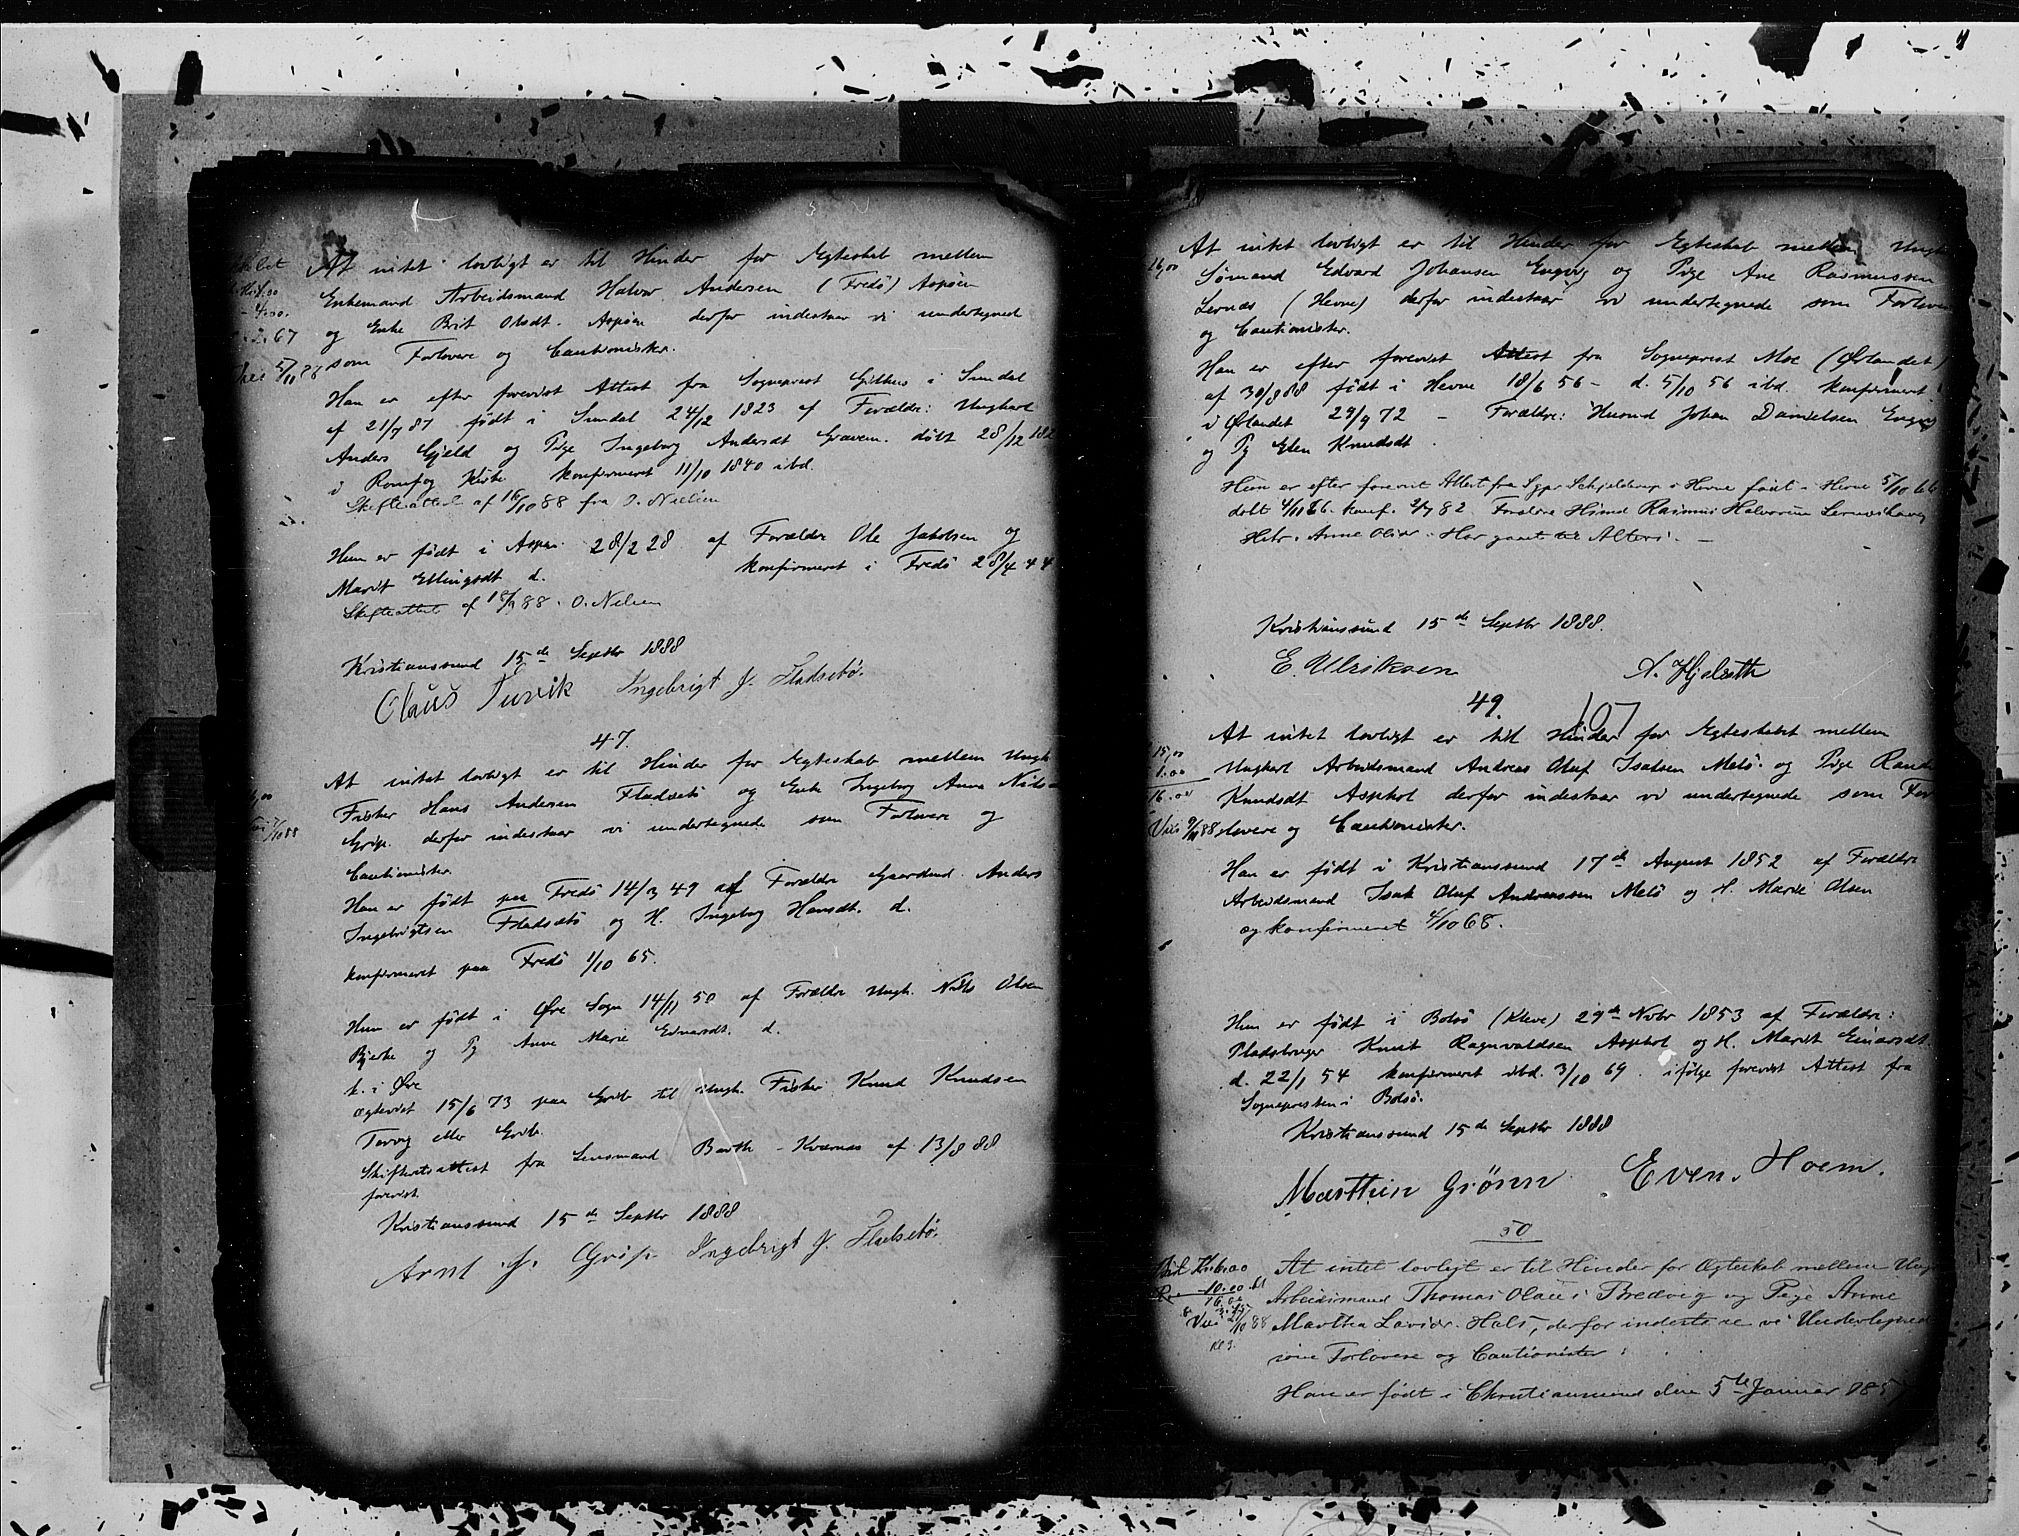 At intet lovligt er til Hinder for Ægteskab mellem
Enkemand Arbeidsmand Halvor Andersen (Fredö) Aspöen
og Enke Brit Olsdt. Aspöen derfor indestaar vi undertegnede
2.67
som Forlovere og Cautionister.
Han er efter forevist Attest fra Sogneprest i Sundal
af 21/7 87 født i Sundal 24/12 1823 af Forældre: Ungkarl
Anders Gjeld og Pige Ingeborg Andersdt Gravem. døbt 28/12 182
i Romfog Kirke konfirmeret 11/10 1840 ibd.
Skifteattest af 16/10 88 fra O. Nielsen
Hun er født i Aspøen 28/2 28 af Forældre Ole Jakobsen og
Marit Ellingsdt d. konfirmeret i Fredö 28/4 44
Skifteattest af 18/9 88. O. Nielsen
Kristianssund 15de Septbr 1888
Olaus Turvik Ingebrigt J. Fladsetö.
47.
At intet lovligt er til Hinder for Ægteskab mellem Ungk
Fisker Hans Andersen Fladsetö og Enke Ingeborg Anna Nils
Grip. derfor indestaar vi undertegnede som Forlovere og
Cautionister.
Han er født paa Fredö 14/3 49 af Forældre Gaardmd. Anders
Ingebrigtsen Fladsetö og H. Ingeborg Hansdt. d.
konfirmeret paa Fredö 1/10 65.
Hun er født i Øre Sogn 14/11 50 af Forældre Ungk. Nils Olsen
Bjerke og Pg Anne Marie Edvardsdt. d.
k. i Øre
Ægteviet 15/6 73 paa Grib til Ungk. Fisker Knud Knudsen
Torvig eller Grib.
Skifteretsattest fra Lensmand Barth - Kvernes af 13/8 88
forevist
Kristianssund 15de Septbr 1888
Arnt J. Grip. Ingebrigt J. Fladsetö.
At intet lovligt er til Hinder for Ægteskab mellem Ungk
16,00
Sømand Edvard Johansen Engvig og Pige Ane Rasmussen
Lernæs (Hevne) derfor indestaar vi undertegnede som Forlovere
og Cautionister.
Han er efter forevist Attest fra Sogneprest Moe (Ørlandet)
af 30/8 88 født i Hevne 18/6 56 - d. 5/10 56 ibd. konfirmeret
i Ørlandet 29/9 72 - Forældre: Husmd Johan Danielsen Engvig
og Pg Elen Knudsdt.
Hun er efter forevist Attest fra Sgpr Schjelderup i Hevne født i Hevne 5/10 66
døbt 4/11 66. konf. 2/7 82 Forældre Husmd Rasmus Halvorsen
Hstr. Anne Olsdr. Har gaaet til Alters. -
Kristianssund 15de Septbr 1888.
E. Ulriksen A. Hjelseth
49. 107
At intet lovligt er til Hinder for Ægteskabet mellem
15,00
1.00
16.00
Ungkarl Arbeidsmand Andreas Oluf Isaksen Melö. og Pige Rande
Knudsdt Asphol derfor indestaar vi undertegnede som For
Viet 9/11 88
lovere og Cautionister.
Han er født i Kristianssund 17de August 1852 af Forældre
Arbeidsmand Isak Oluf Andreassen Melö og H. Marie Olsen
og konfirmeret 4/10 68.
Hun er født i Bolsö (Kleve) 29de Novbr 1853 af Forældre:
Pladsbruger Knut Ragnvaldsen Asphol og H. Marit Einarsdt.
d. 22/1 54 konfirmeret ibd. 3/10 69. ifølge forevist Attest fra
Sognepresten i Bolsö.
Kristianssund 15de Septbr 1888
Marthin Grönn. Even. Hoem.
50
10.00
At intet lovligt er til Hinder for Ægteskab mellem Ung
Arbeidsmand Thomas Olaus Bredvig og Pige Anne
Marthea Lavisdr. Hals, derfor indestaae vi Undertegned
som Forlovere og Cautionister:
Han er født i Christianssund den 5te Januar 185